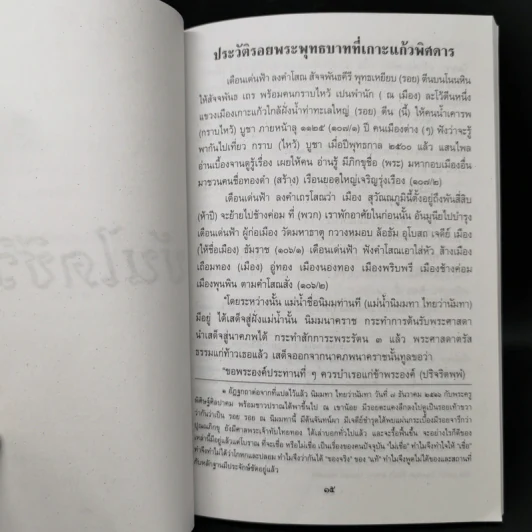 ประวัติรอยพระพุทธบาทที่เกาะแก้วพิศดาร
เดือนเด่นฟ้า ลงคำโสณ สัจจพันธคีรี พุทธเหยียบ (รอย) ตีนบนโนนหิน
ให้สัจจพันธ เถร พร้อมคนกราบไหว้ เปนพำนัก ( ณ เมือง) ละไว้ตีนหนึ่ง
แขวงเมืองเกาะแก้วใกล้ฝั่งน้ำท่าทะเลใหญ่ (รอย) ตีน (นี้) ให้คนน้ำเคารพ
(กราบไหว้) บูชา ภายหน้าลุ ๑๑๒๕ (๑๐๗/๑) ปี คนเมืองต่าง (ๆ) ฟังว่าจะรู้
พากันไปเที่ยว กราบ (ไหว้) บูชา เมื่อปีพุทธกาล ๒๕๐๐ แล้ว แสนไพล
อ่านเนื้องจานดูรู้เรื่อง เผยให้คน อ่านรู้ มีภิกขุชื่อ (พระ) มหากอบเมืองอื่น
มาชวนคนชื่อทองคำ (สร้าง) เรือนยอดใหญ่เจริญรุ่งเรือง (๑๐๗/๒)
เดือนเด่นฟ้า ลงคำเถรโสณว่า เมือง สุวัณณภูมินี้ตั้งอยู่ถึงพันสี่สิบ
(ห้าปี) จะย้ายไปช้างค่อม ที่ (พวก) เราพักอาศัยในก่อนนั้น อันมูนียไปบำรุง
เดือนเด่นฟ้า ผู้ก่อเมือง วัดมหธาตุ กวางหมอบ ล้อธัม อุโบสถ เจดีย์ เมือง
(ให้ชื่อเมือง) ธัมราช (๑๐๖/๑) เดือนเด่นฟ้า ฟังคำโสณเอาใส่หัว สร้างเมือง
เถือมทอง (เมือง) อู่ทอง เมืองนองทอง เมืองพริบพรี เมืองช้างค่อม
เมืองพูนพิน ตามคำโสณสั่ง (๑๐๖/๒)
"โดยระหว่างนั้น แม่น้ำชื่อนิมมทานที (แม่น้ำนิมมทา ไทยว่านัมทา)
มีอยู่ ได้เสด็จสู่ฝั่งแม่น้ำนั้น นิมมนาคราช กระทำการต้อนรับพระศาสดา
นำเสด็จสู่นาคภพได้ กระทำสักการะพระรัตน ๓ แล้ว พระศาสดาตรัส
ธรรมแก่ท้าวเธอแล้ว เสด็จออกจากนาคภพนาคราชนั้นทูลขอว่า
"ขอพระองค์ประทานที่ ๆ ควรบำเรอแก่ข้าพระองค์ (ปริจริตพฺพํ)
๑๕